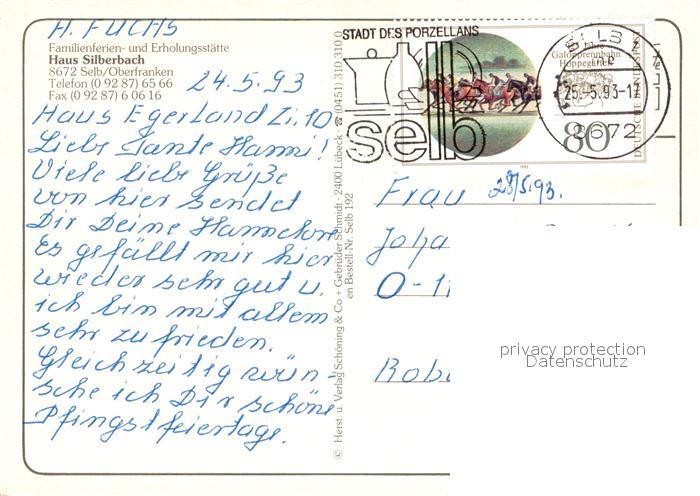 H. FUCHS
Familienferien- und Erholungsstätte
Haus Silberbach
8672 Selb/Oberfranken
Telefon (0 92 87) 65 66
Fax (0 92 87) 6 06 16
24.5.93
Haus Egerland Zi. 10
Liebe Tante Hanni!
Viele liebe Grüße
von hier sendet
Dir Deine
Es gefällt mir hier
wieder sehr gut u.
ich bin mit allem
sehr zu frieden.
Gleichzeitig wün-
sche ich Dir schöne
Pfingstfeiertage.
© Herst. u. Verlag Schöning & Co + Gebrüder Schmidt · 2400 Lübeck · ☎ (0451) 310 310 0
en Bestell-Nr. Selb 192
STADT DES PORZELLANS
selb
SELB
25.-5.93-17
8672
Jahre
Galopprennbahn
Hoppegarten
80
DEUTSCHE BUNDESPOST
1993
Frau
28/5.93.
Joha
O-11
Robe
privacy protection
Datenschutz